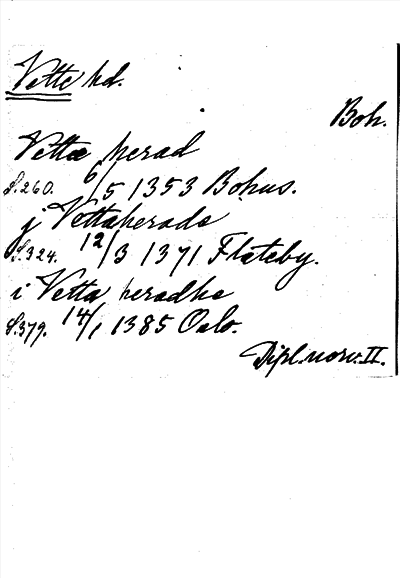 Vette hd.
Boh.
Vettæ herad
S.260. 6/5 1353 Bohus.
j Vettaherade
S.324. 12/3 1371 Flateby.
i Vetta heradhe
S.379. 14/1 1385 Oslo.
Dipl. norv. II.